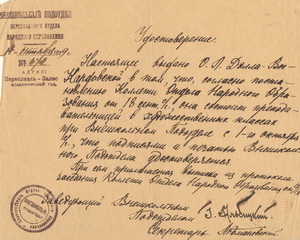 ВНЕШКОЛЬНЫЙ ПОДОТДЕЛ
ПЕРЕСЛАВСКОГО ОТДЕЛА
НАРОДНОГО ОБРАЗОВАНИЯ
октября
№
АДРЕС:
Переславль-Залес
Удостоверение.
Настоящее выдано О. Л. Делла-Вос-
Кардовской в том, что, согласно поста-
новлению Коллегии Отдела Народного Образо-
вания от 18 сент., она состоит препода-
вательницей в художественных классах
при Внешкольном Подотделе с 1-го октября
что подписями и печатью Внешколь-
ного Подотдела удостоверяется.
При сем прилагается выписка из протокола
заседания Коллегии Отдела Народно Образования
Заведующий Внешкольным
Подотделом
Секретарь